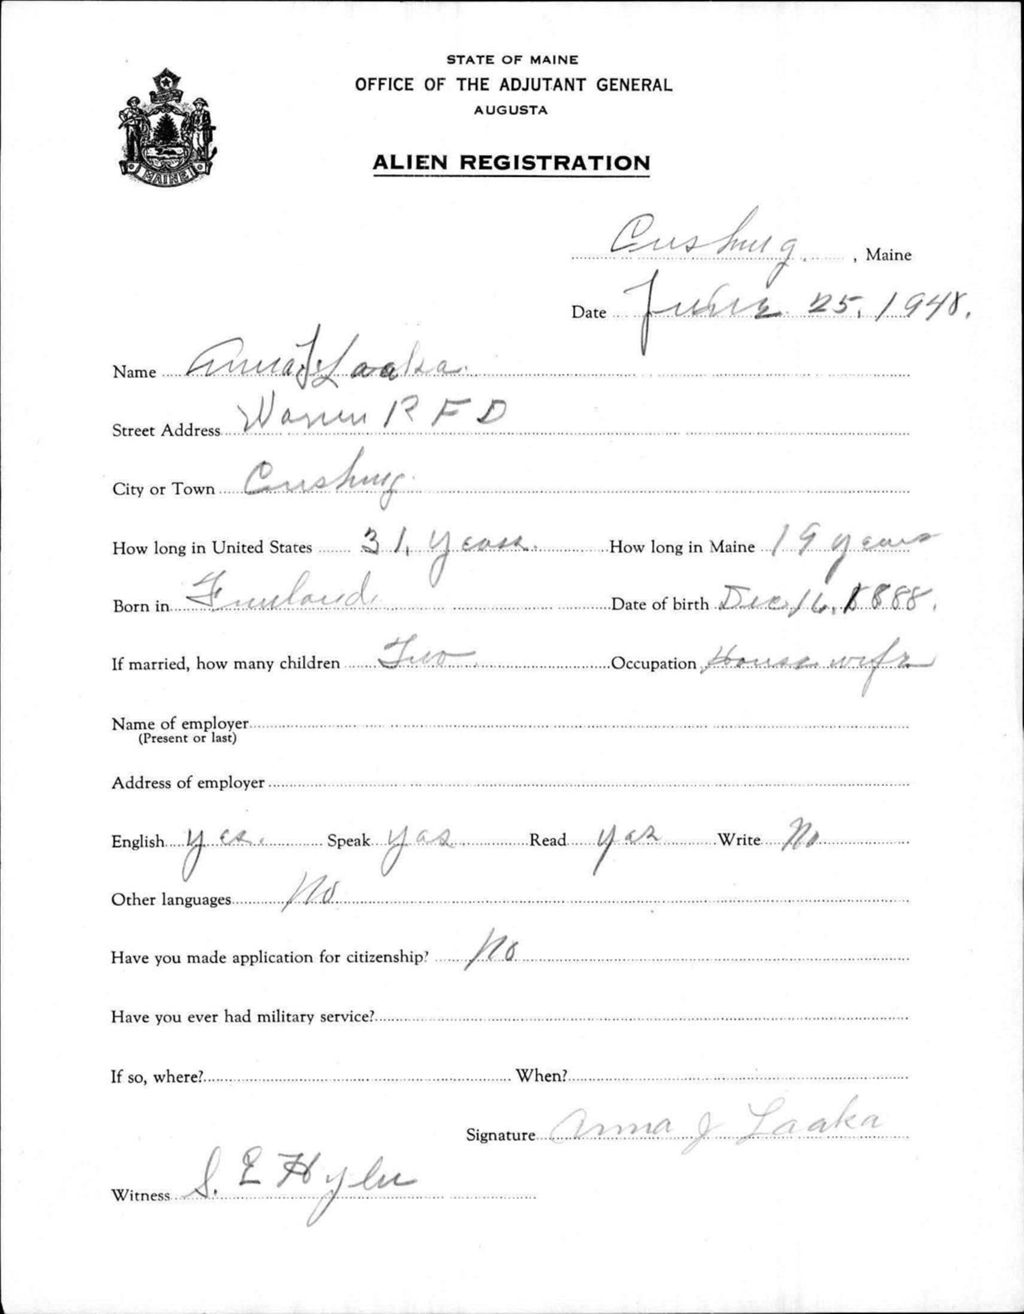 STATE OF MAINE
OFFICE OF THE ADJUTANT GENERAL
AUGUSTA
MAINE
ALIEN REGISTRATION
Cushing, Maine
Date June 25, 1948.
Name Anna J Laaka.
Street Address Warren R F D
City or Town Cushing.
How long in United States 31, years. How long in Maine 19 years
Born in Finland Date of birth Dec, 16, 1888.
If married, how many children Two. Occupation House wife
Name of employer
(Present or last)
Address of employer
English yes. Speak yes. Read yes Write No
Other languages No
Have you made application for citizenship? No
Have you ever had military service?
If so, where? When?
Signature Anna J Laaka
Witness S. E Hyler